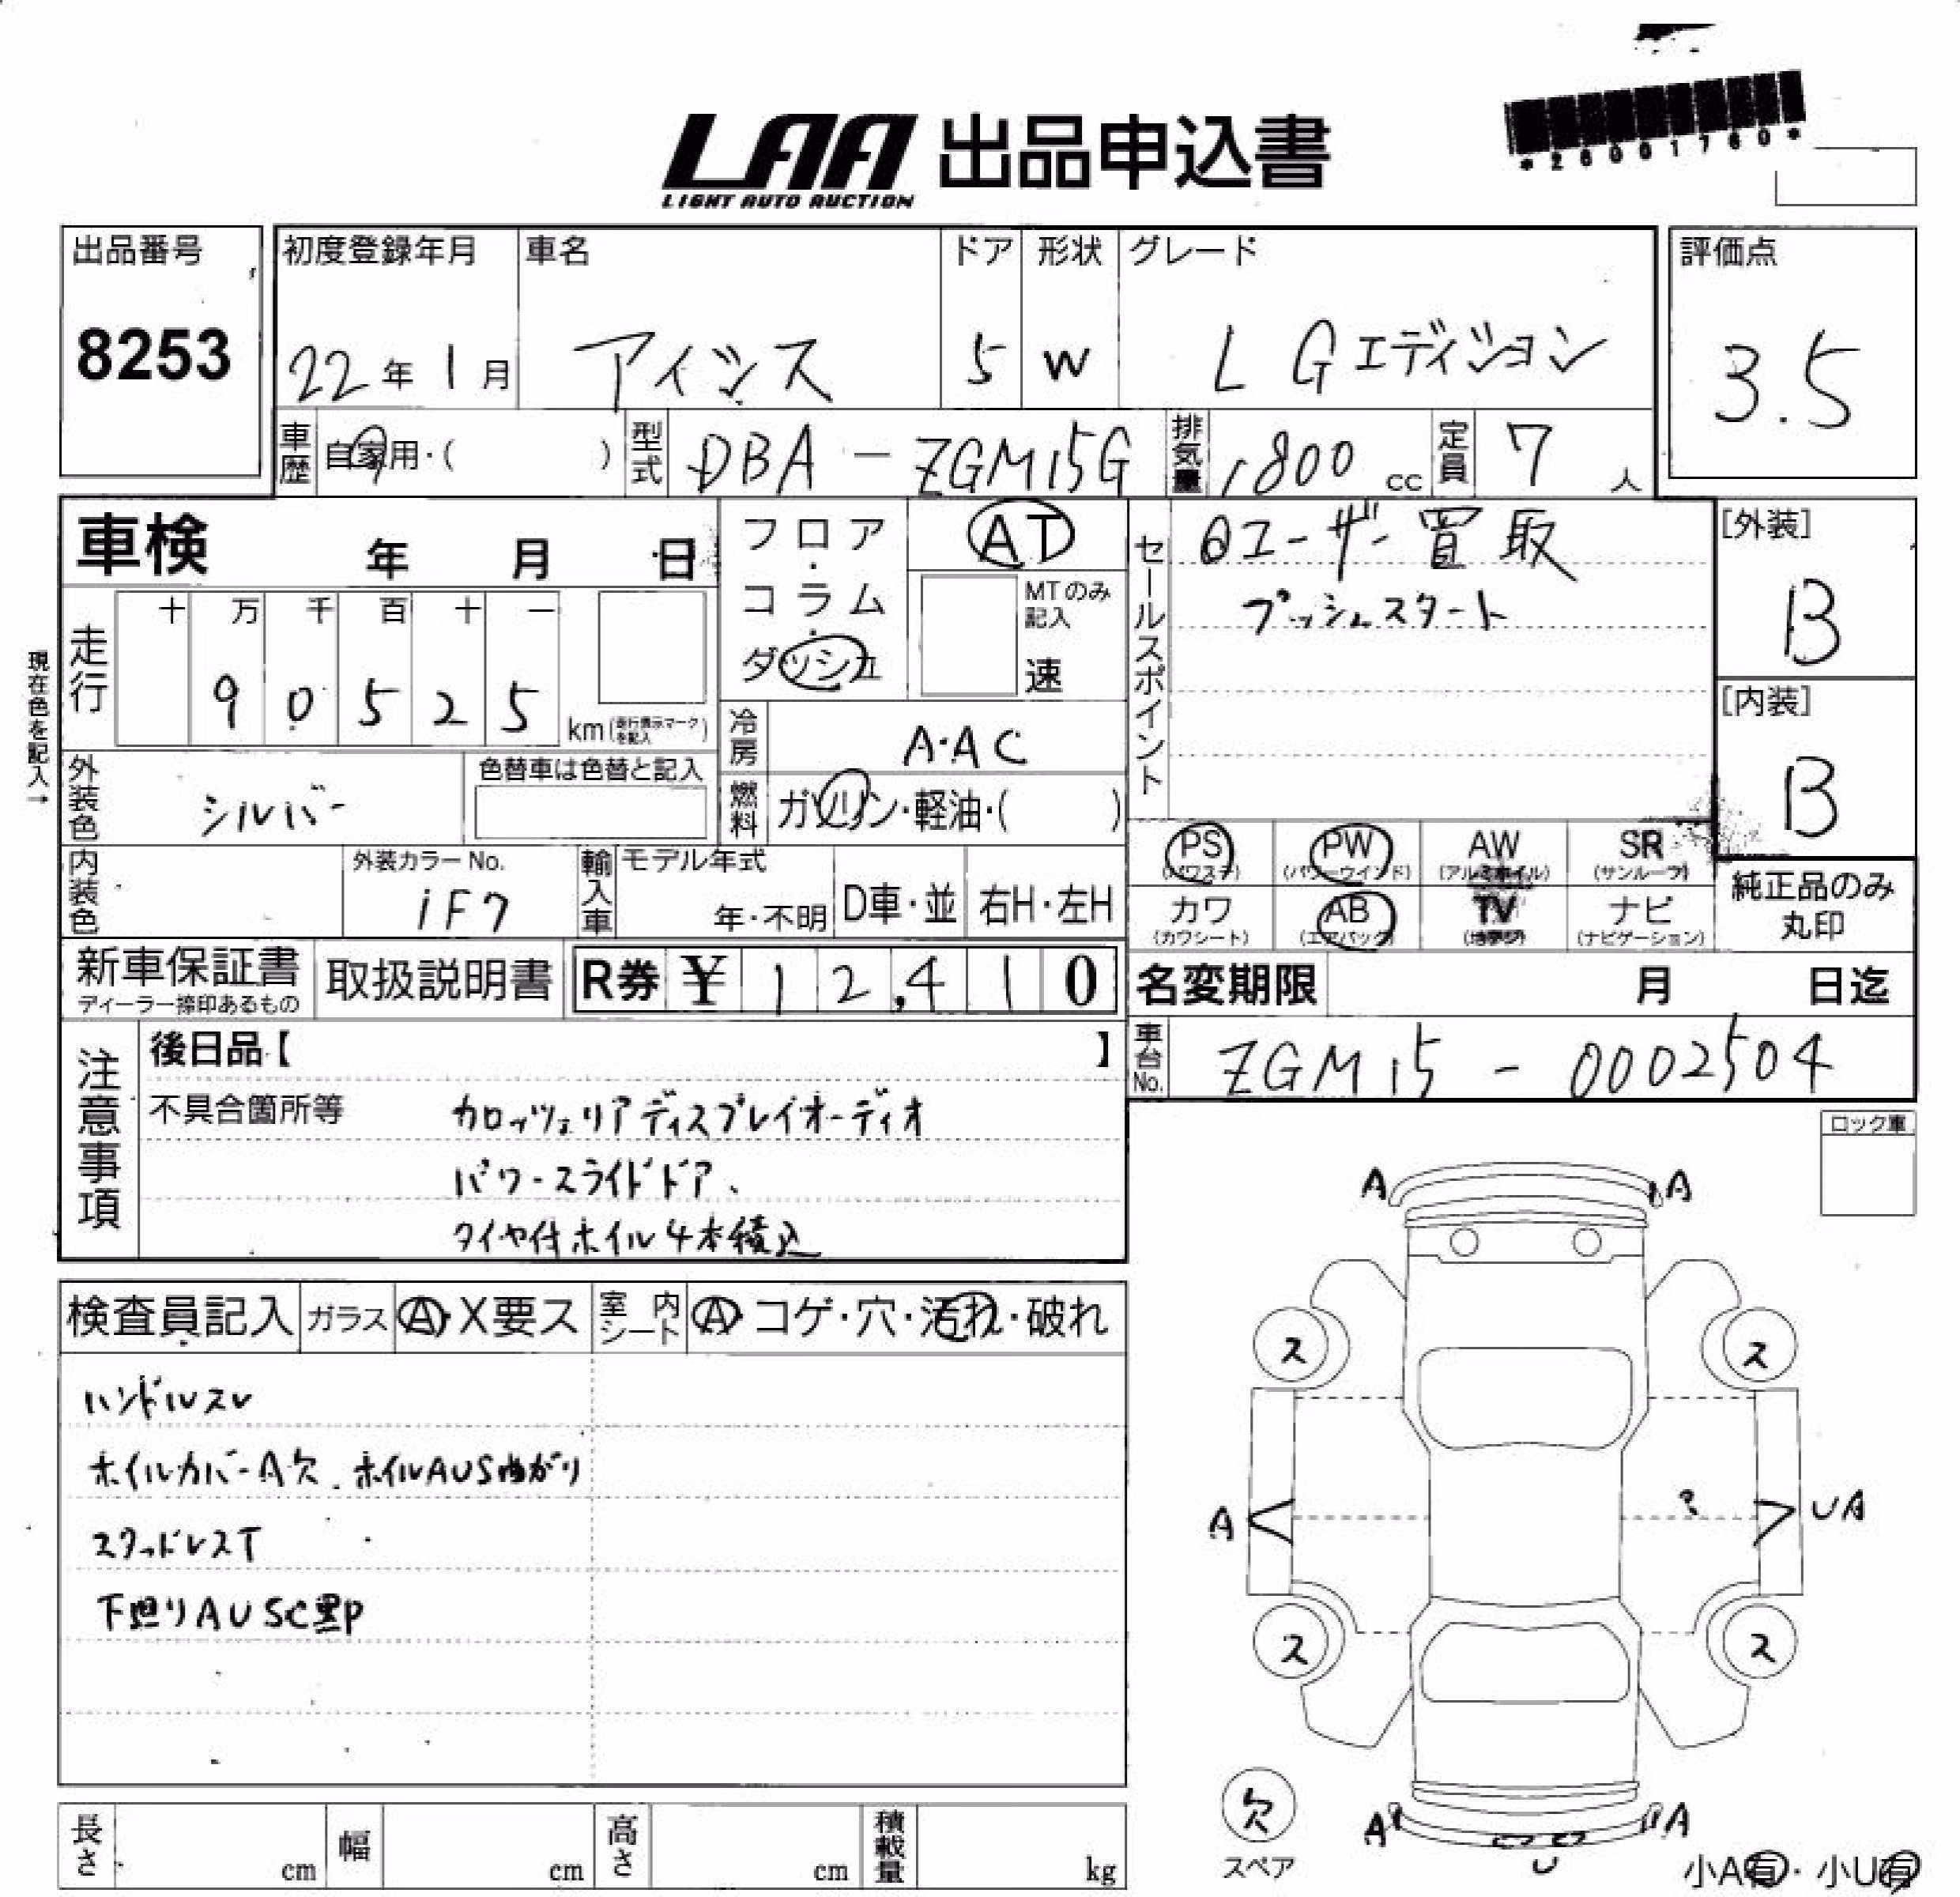 LAA 出品申込書
LIGHT AUTO AUCTION
*26001760*
出品番号
8253
初度登録年月
22年1月
車名
アイシス
ドア
5
形状
W
グレード
L Gエディション
評価点
3.5
車歴
自家用・( )
型式
DBA-ZGM15G
排気量
1800 cc
定員
7人
車検 年 月 日
フロア・コラム・ダッシュ
AT
MTのみ記入
速
セールスポイント
ユーザー買取
プッシュスタート
[外装]
B
[内装]
B
現在色を記入→
走行
十 万 千 百 十 一
9 0 5 2 5
km(走行表示マークを記入)
冷房
A・AC
燃料
ガソリン・軽油・( )
外装色
シルバー
色替車は色替と記入
内装色
外装カラーNo.
1F7
輸入車
モデル年式
年・不明
D車・並
右H・左H
PS
(パワステ)
PW
(パワーウインド)
AW
(アルミホイル)
SR
(サンルーフ)
カワ
(カワシート)
AB
(エアバック)
TV
(地デジ)
ナビ
(ナビゲーション)
純正品のみ
丸印
新車保証書
ディーラー捺印あるもの
取扱説明書
R券 ¥12,410
名変期限 月 日迄
車台No.
ZGM15-0002504
注意事項
後日品【 】
不具合箇所等
カロッツェリアディスプレイオーディオ
パワースライドドア、
タイヤ付ホイル4本積込
ロック車
検査員記入
ガラス
A・X要ス
室内シート
A・コゲ・穴・汚れ・破れ
ハンドルスレ
ホイルカバーA欠、ホイルAUS曲がり
スタッドレスT
下廻りAUSC黒P
A A
ス ス
A UA
ス ス
欠
スペア
A A
U
小A有・小U有
長さ cm
幅 cm
高さ cm
積載量 kg